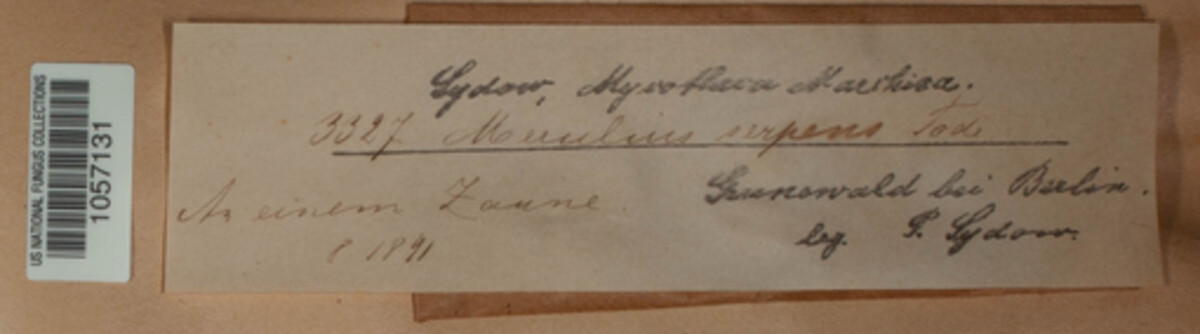 US NATIONAL FUNGUS COLLECTIONS
1057131
Sydow, Mycotheca Marchica.
3327 Merulius serpens Tode
An einem Zaune.
8 1891
Grunewald bei Berlin.
leg. P. Sydow.